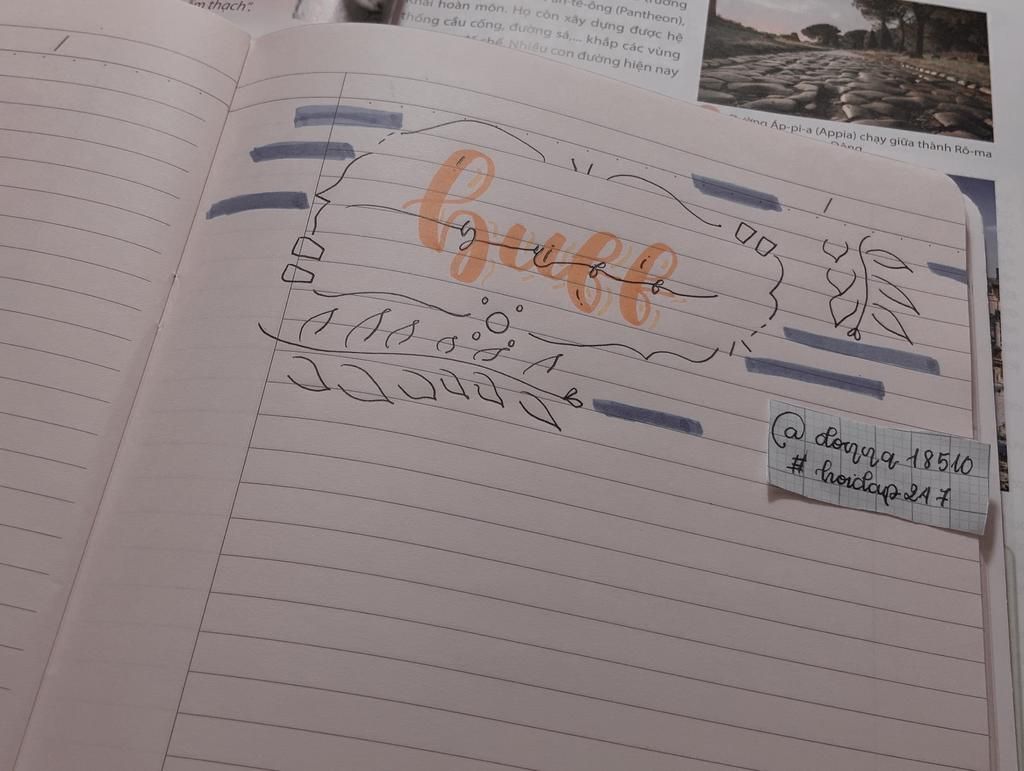 thạch".
(Pantheon),
khải hoàn môn. Họ còn xây dựng được hệ
thống cầu cống, đường sá,... khắp các vùng
đế chế. Nhiều con đường hiện nay
Đường Áp-pi-a (Appia) chạy giữa thành Rô-ma
buff
@ donna 18510
# hoidap247